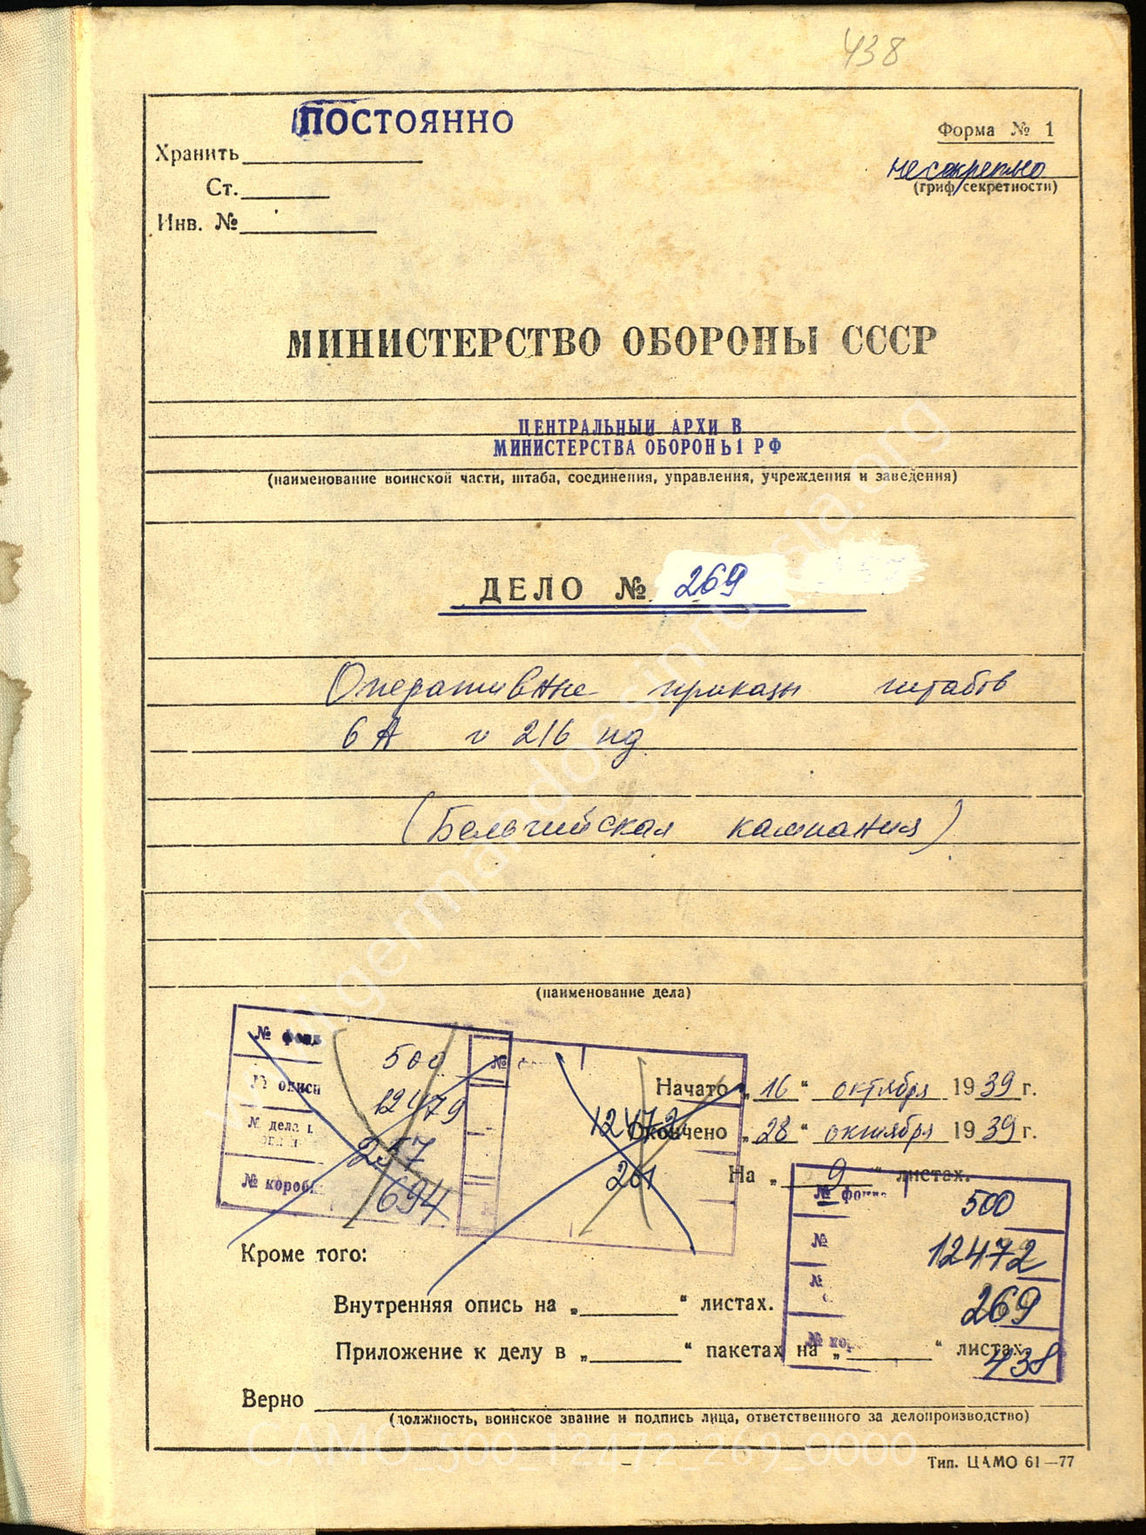 438
ПОСТОЯННО
Форма № 1
Хранить
несекретно
(гриф секретности)
Ст.
Инв. №
МИНИСТЕРСТВО ОБОРОНЫ СССР
ЦЕНТРАЛЬНЫЙ АРХИВ
МИНИСТЕРСТВА ОБОРОНЫ РФ
(наименование воинской части, штаба, соединения, управления, учреждения и заведения)
ДЕЛО № 269
Оперативные приказы штабов
6 А и 216 пд
(Бельгийская кампания)
(наименование дела)
№ фонд 500
№ описи 12479
№ дела 257
№ коробк 694
№
12472
261
Начато „16“ октября 1939 г.
Окончено „28“ октября 1939 г.
На „9“ листах.
№ фонд 500
№ 12472
№ 269
№ кор 438
Кроме того:
Внутренняя опись на „ “ листах.
Приложение к делу в „ “ пакетах на „ “ листах
Верно
(должность, воинское звание и подпись лица, ответственного за делопроизводство)
Тип. ЦАМО 61—77
www.germandocsinrussia.org
CAMO_500_12472_269_0000